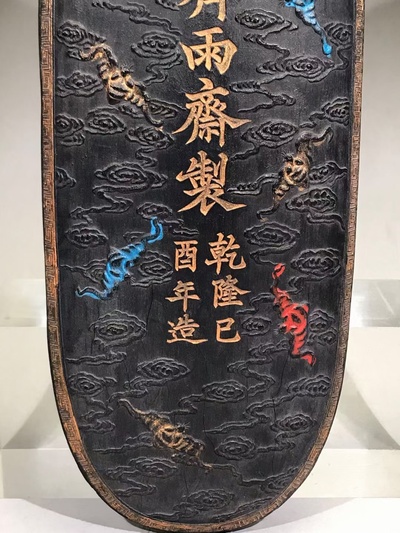 雨齋製
乾隆已
酉年造